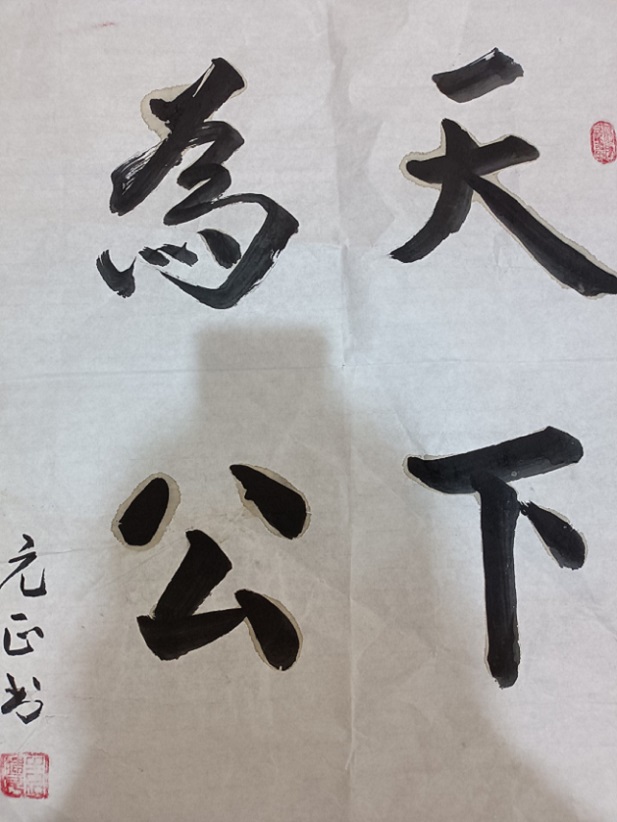 天下
為公
元正书